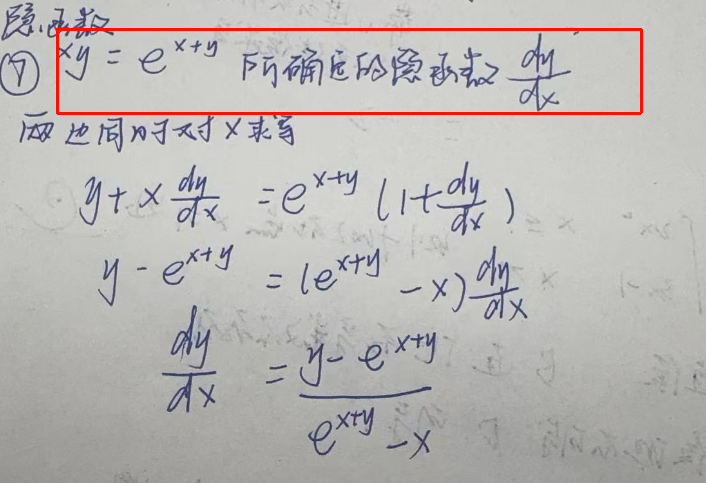 隐函数
⑦ xy = e^{x+y} 所确定的隐函数 dy/dx
两边同时对x求导
y + x dy/dx = e^{x+y} (1 + dy/dx)
y - e^{x+y} = (e^{x+y} - x) dy/dx
dy/dx = (y - e^{x+y})/(e^{x+y} - x)